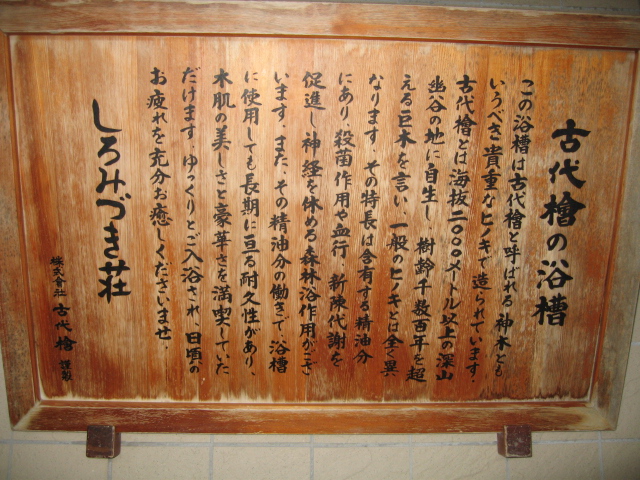 古代檜の浴槽
この浴槽は古代檜と呼ばれる神木とも
いうべき貴重なヒノキで造られています。
古代檜とは海抜二〇〇〇メートル以上の深山
幽谷の地に自生し、樹齢千数百年を超
える巨木を言い、一般のヒノキとは全く異
なります。その特長は含有する精油分
にあり、殺菌作用や血行、新陳代謝を
促進し神経を休める森林浴作用がござ
います。また、その精油分の働きで、浴槽
に使用しても長期に亘る耐久性があり、
木肌の美しさと豪華さを満喫していた
だけます。ゆっくりとご入浴され、日頃の
お疲れを充分お癒しくださいませ。
しろみづき荘
株式會社 古代檜 謹製